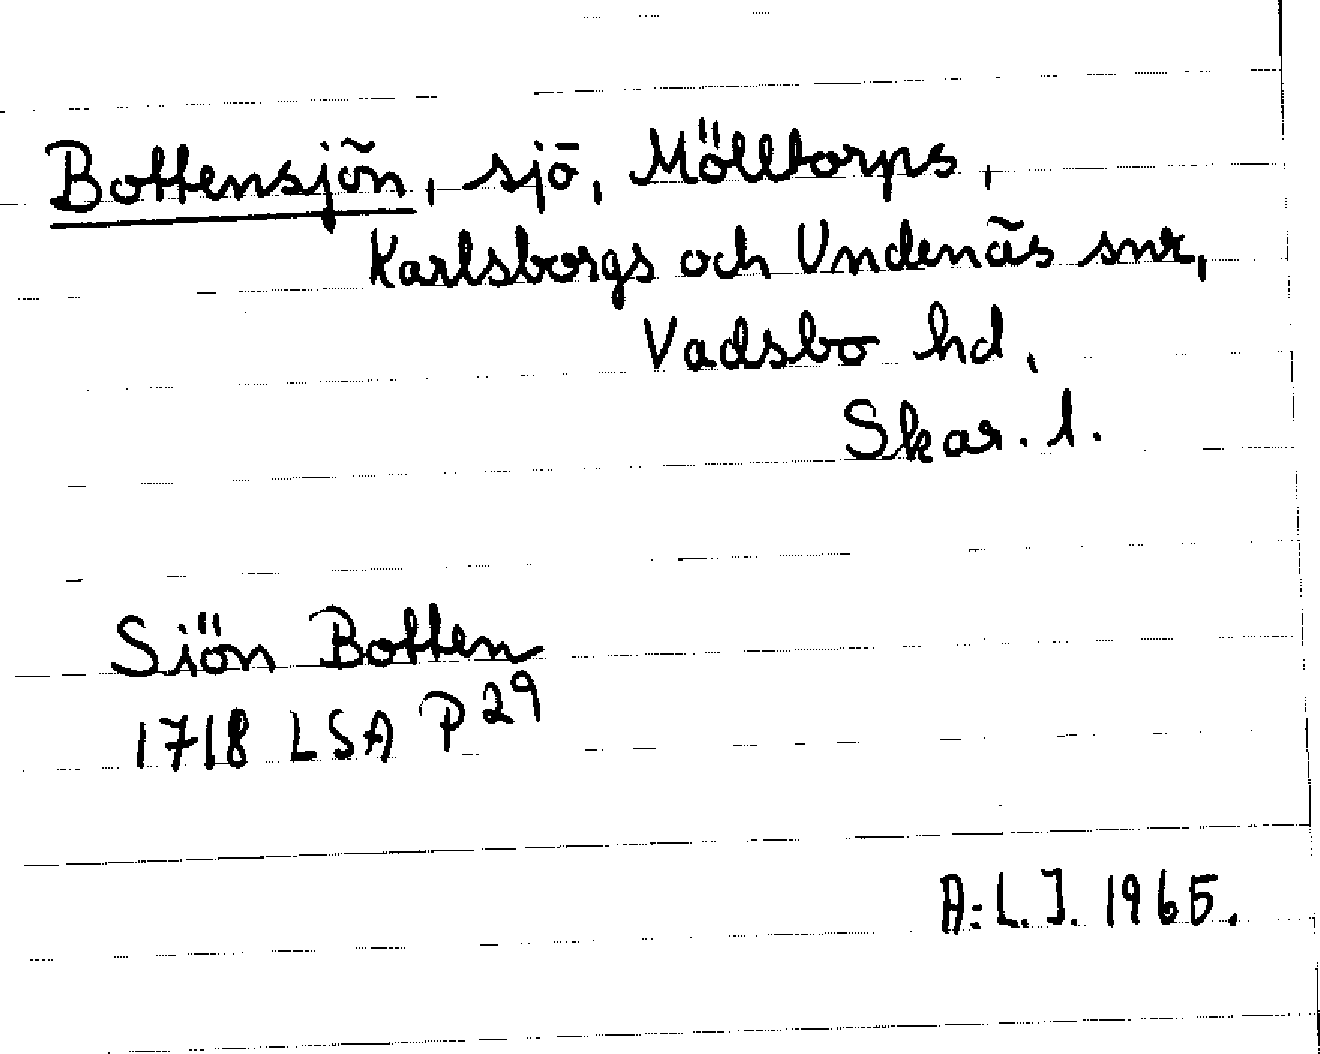 Bottensjön, sjö, Mölltorps,
Karlsborgs och Undenäs snr,
Vadsbo hd,
Skar. l.
Siön Botten
1718 LSA P 29
A:L.J. 1965.